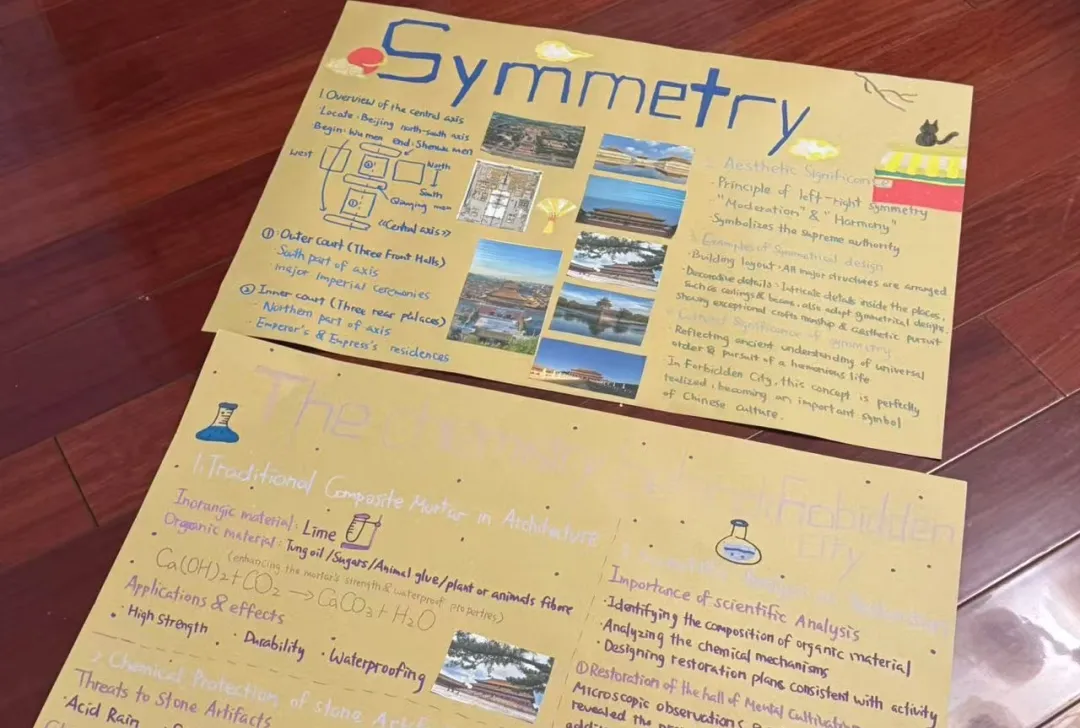 Symmetry
1. Overview of the central axis
· Locate: Beijing north-south axis
Begin: Wu men end: Shenwu men
West
North
South
Qianqing men
①
②
《Central axis》
①: Outer court (Three Front Halls)
· South part of axis
· major Imperial ceremonies
② Inner court (Three rear palaces)
· Northern part of axis
· Emperor's & Empress's residences
Aesthetic Significan
· Principle of left-right symmetry
· "Moderation" & "Harmony"
· Symbolizes the supreme authority
3. Examples of Symmetrical design
· Building layout: All major structures are arranged
· Decorative details: Intricate details inside the places,
such as ceilings & beams, also adapt symmetrical designs,
showing exceptional crafts manship & aesthetic pursuit
Cultural Significance of symmetry
· Reflecting ancient understanding of universal
order & pursuit of a harmonious life
In Forbidden City, this concept is perfectly
realized, becoming an important symbol
of Chinese culture.
The Chemistry Forbidden
City
1. Traditional Composite Mortar in Architecture
Inorangic material: Lime
Organic material: Tung oil/Sugars/Animal glue/plant or animals fibre
(enhancing the mortar's strength & waterproof properties)
Ca(OH)2 + CO2 → CaCO3 + H2O
Applications & effects
· High strength · Durability · Waterproofing
2. Chemical Protection of stone Artif
Threats to Stone Artifacts
· Acid Rain
Importance of scientific Analysis
· Identifying the composition of organic material
· Analyzing the chemical mechanisms
· Designing restoration plans consistent with activity
① Restoration of the hall of Mental Cultivation
Microscopic observations
revealed the